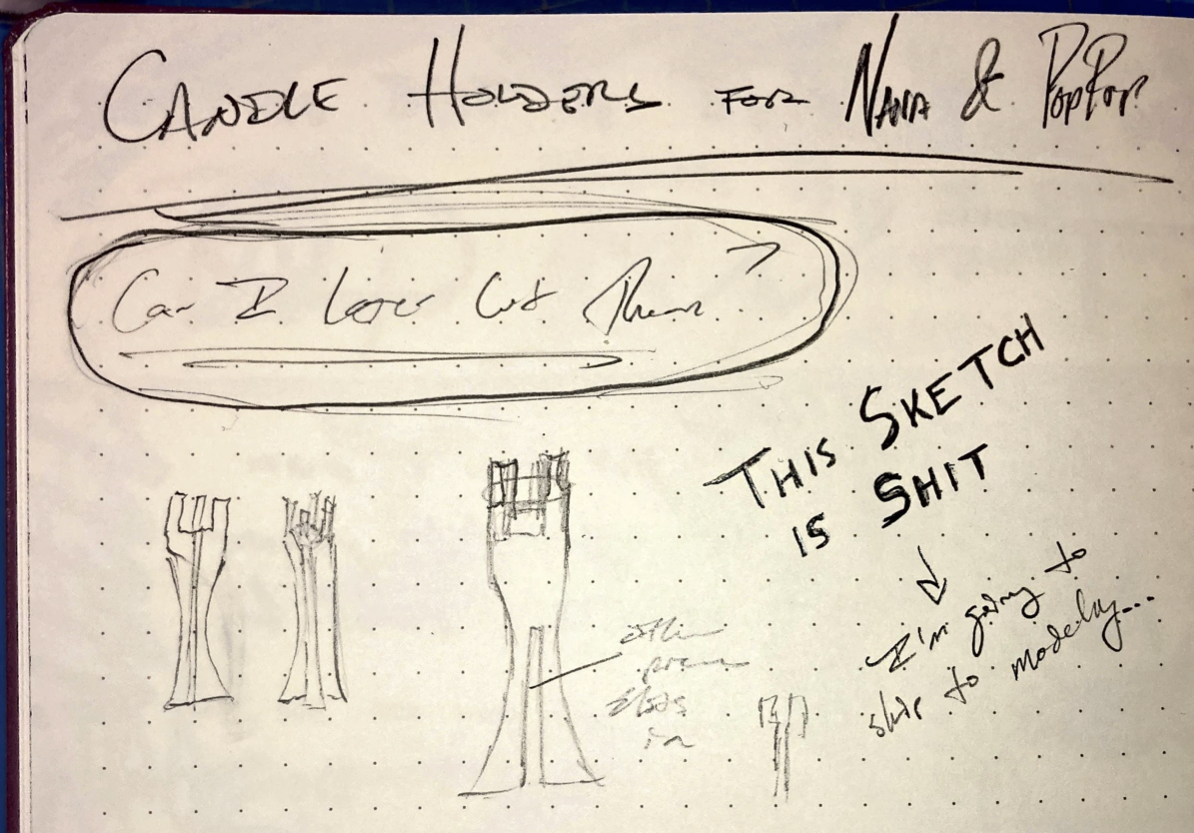 CANDLE HOLDERS FOR NANA & POPPOP
Can I Laser Cut Them?
THIS SKETCH
IS SHIT
I'm going to
skip to modeling...
other
piece
slides
in